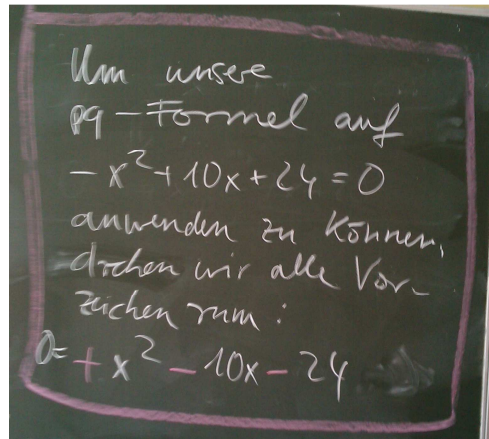 Um unsere
pq-Formel auf
-x²+10x+24=0
anwenden zu können,
drehen wir alle Vor-
zeichen rum:
0= +x²-10x-24